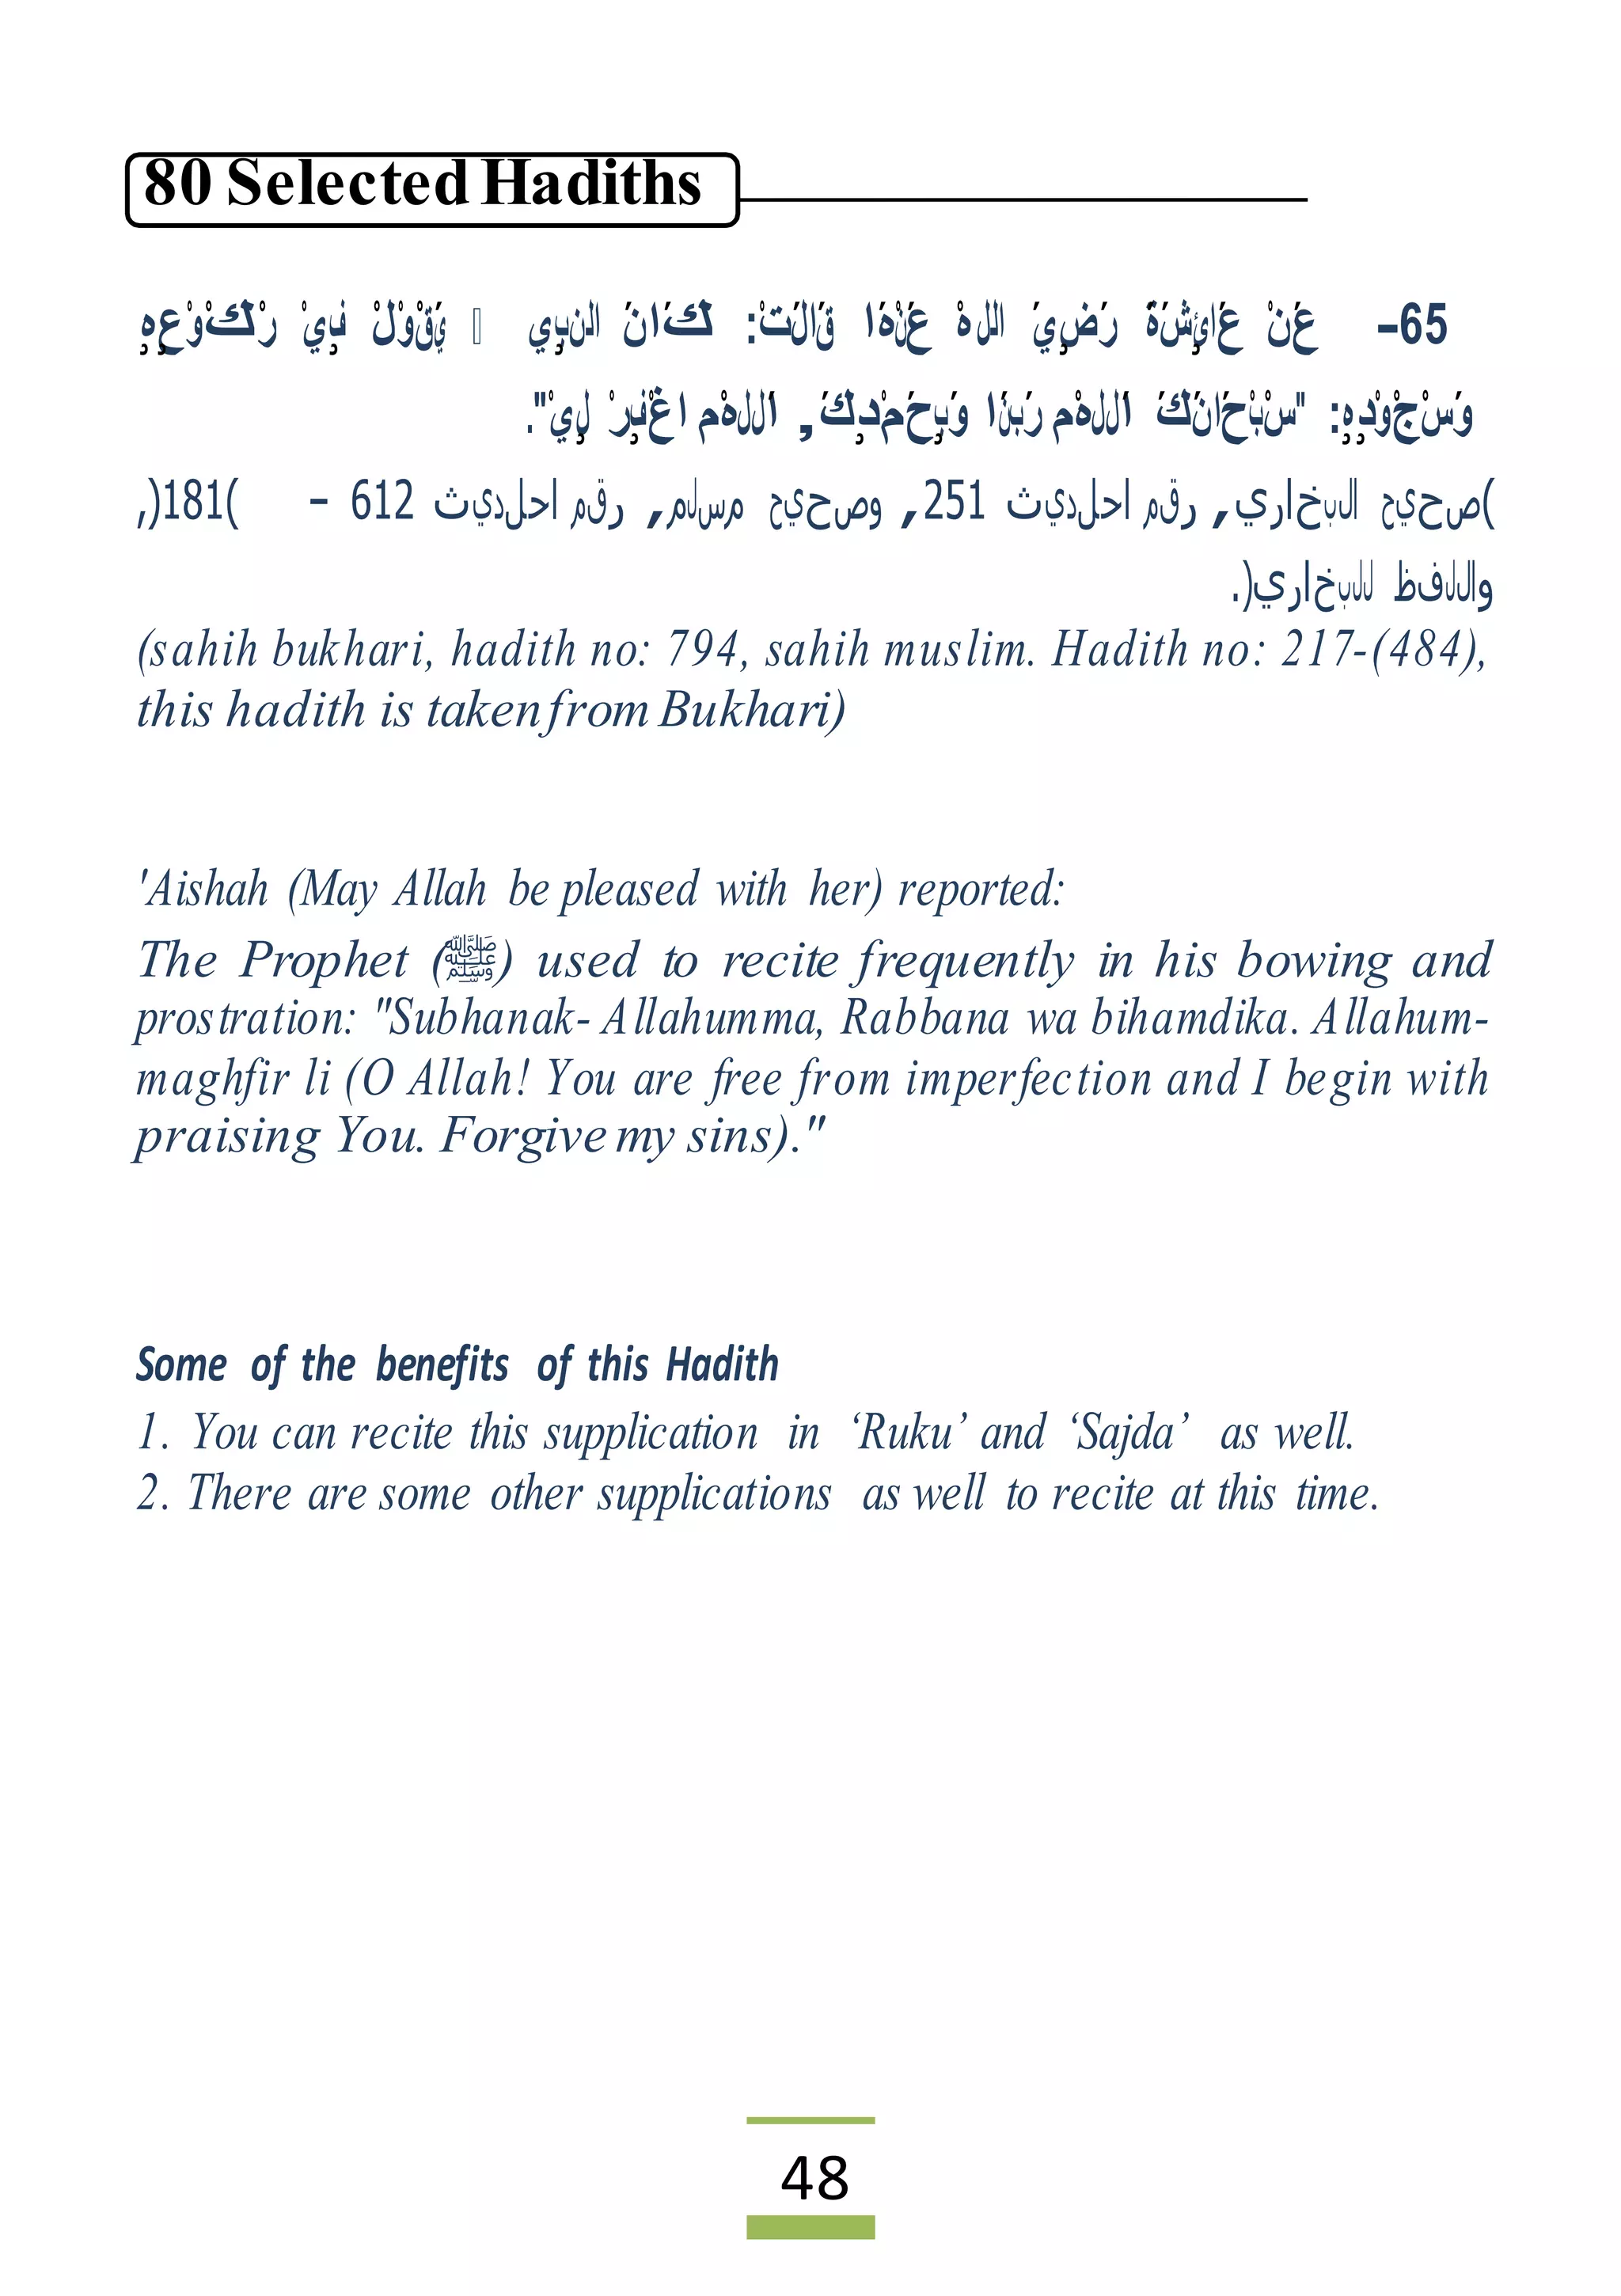 80 Selected Hadiths
65- عَنْ عَائِشَةَ رَضِيَ اللهْ عَنْهَا قَالَتْ: كَانَ النبِي يَقْوْلْ فِيْ رْكْوْعِهِ
وَسْجْوْدِهِ: "سْبْحَانَكَ اَللهْم رَبنَا وَبِحَمْدِكَ, اَللهْم اغْفِرْ لِيْ".
)صحيح البخاري, رقم احلديث 251, وصحيح مسلم, رقم احلديث 612 - )181(,
واللفظ للبخاري(.
(sahih bukhari, hadith no: 794, sahih muslim. Hadith no: 217-(484),
this hadith is taken from Bukhari)
'Aishah (May Allah be pleased with her) reported:
The Prophet (ﷺ) used to recite frequently in his bowing and
prostration: "Subhanak- Allahumma, Rabbana wa bihamdika. Allahum-
maghfir li (O Allah! You are free from imperfection and I begin with
praising You. Forgive my sins)."
Some of the benefits of this Hadith
1. You can recite this supplication in ‘Ruku’ and ‘Sajda’ as well.
2. There are some other supplications as well to recite at this time.
48